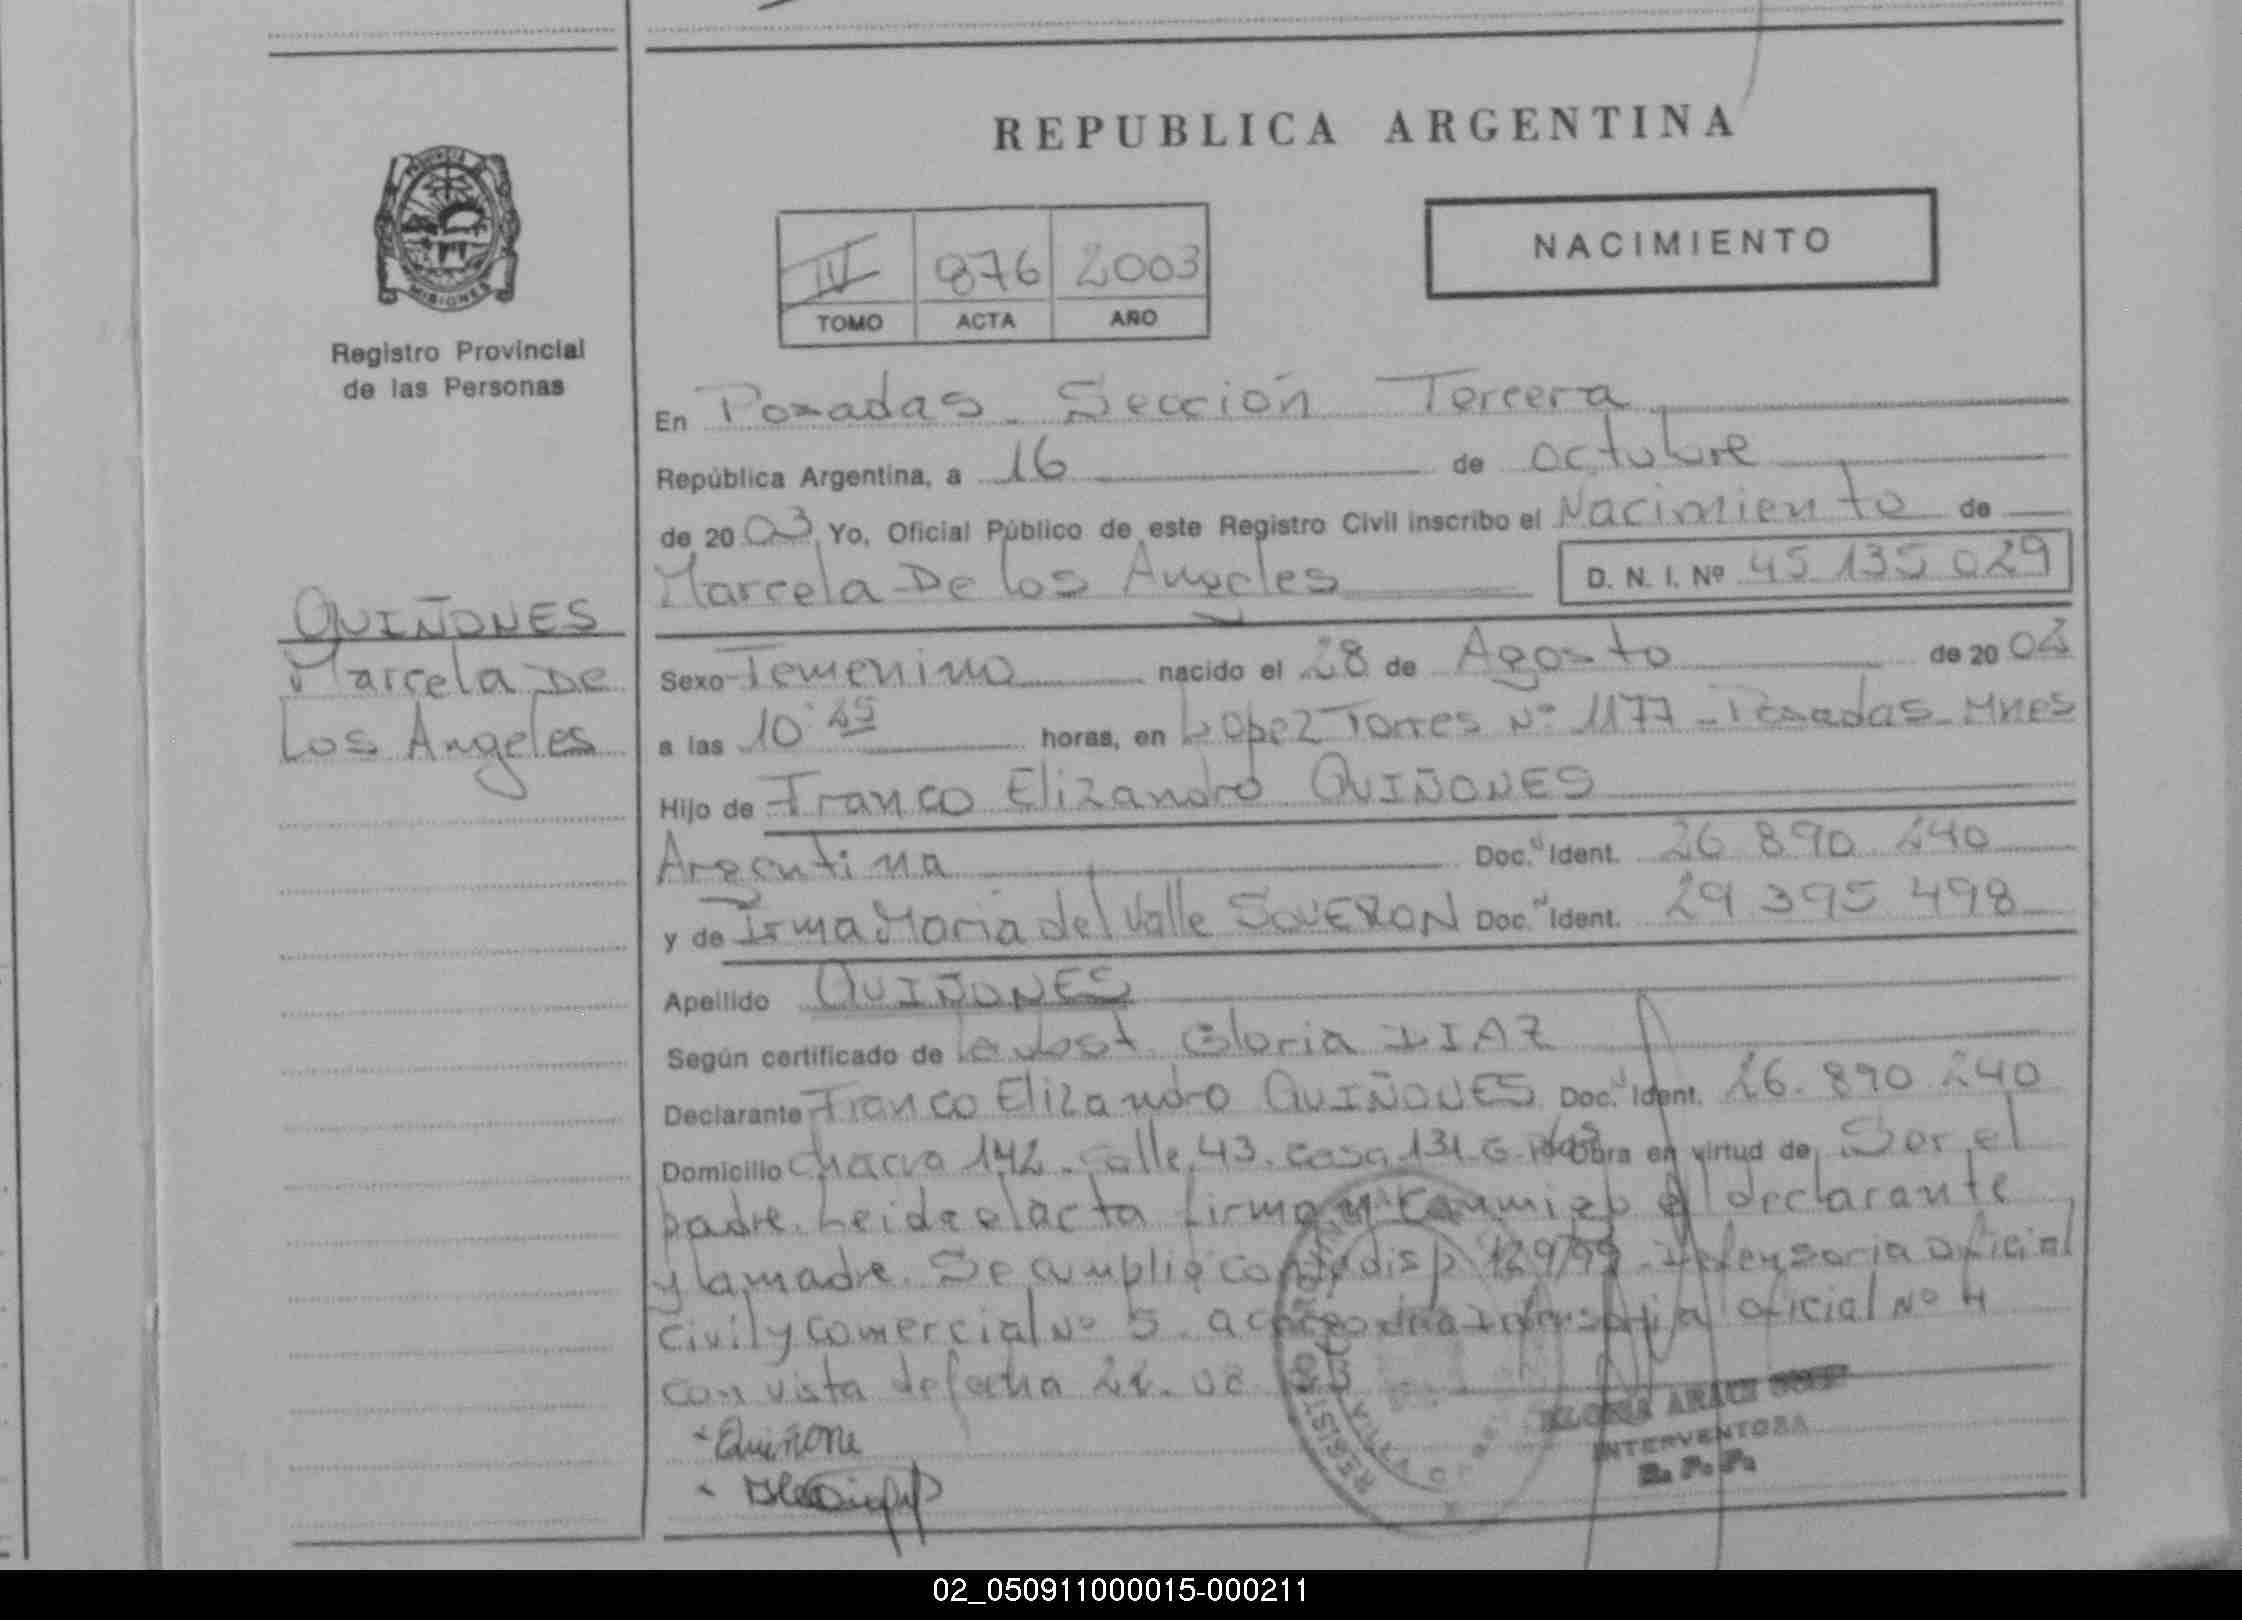 REPUBLICA ARGENTINA
PROVINCIA DE
MISIONES
Registro Provincial
de las Personas
IV 876 2003
TOMO ACTA AÑO
NACIMIENTO
En Posadas - Sección Tercera
República Argentina, a 16 de octubre
de 20 03 Yo, Oficial Público de este Registro Civil inscribo el Nacimiento de
Marcela De los Angeles D. N. I. Nº 45 135 029
QUIÑONES
Marcela De
Los Angeles
Sexo Femenino nacido el 28 de Agosto de 20 02
a las 10:45 horas, en Lopez Torres Nº 1177 - Posadas - Mnes
Hijo de Franco Elizandro QUIÑONES
Argentina Doc. Ident. 26 890 240
y de Irma Maria del Valle SOVERON Doc. Ident. 29 395 498
Apellido QUIÑONES
Según certificado de la obst. Gloria DIAZ
Declarante Franco Elizandro QUIÑONES Doc. Ident. 26.890 240
Domicilio chacra 142 - Calle 43 - casa 131 - Obra en virtud de Ser el
padre. Leida el acta firma y el declarante
y la madre. Se cumplio con disp 129/99 - Defensoria Oficial
Civil y Comercial Nº 5 oficial Nº 4
con vista de fecha
Quiñone
REGISTRO
INTERVENTORA
R. P. P.
02_050911000015-000211